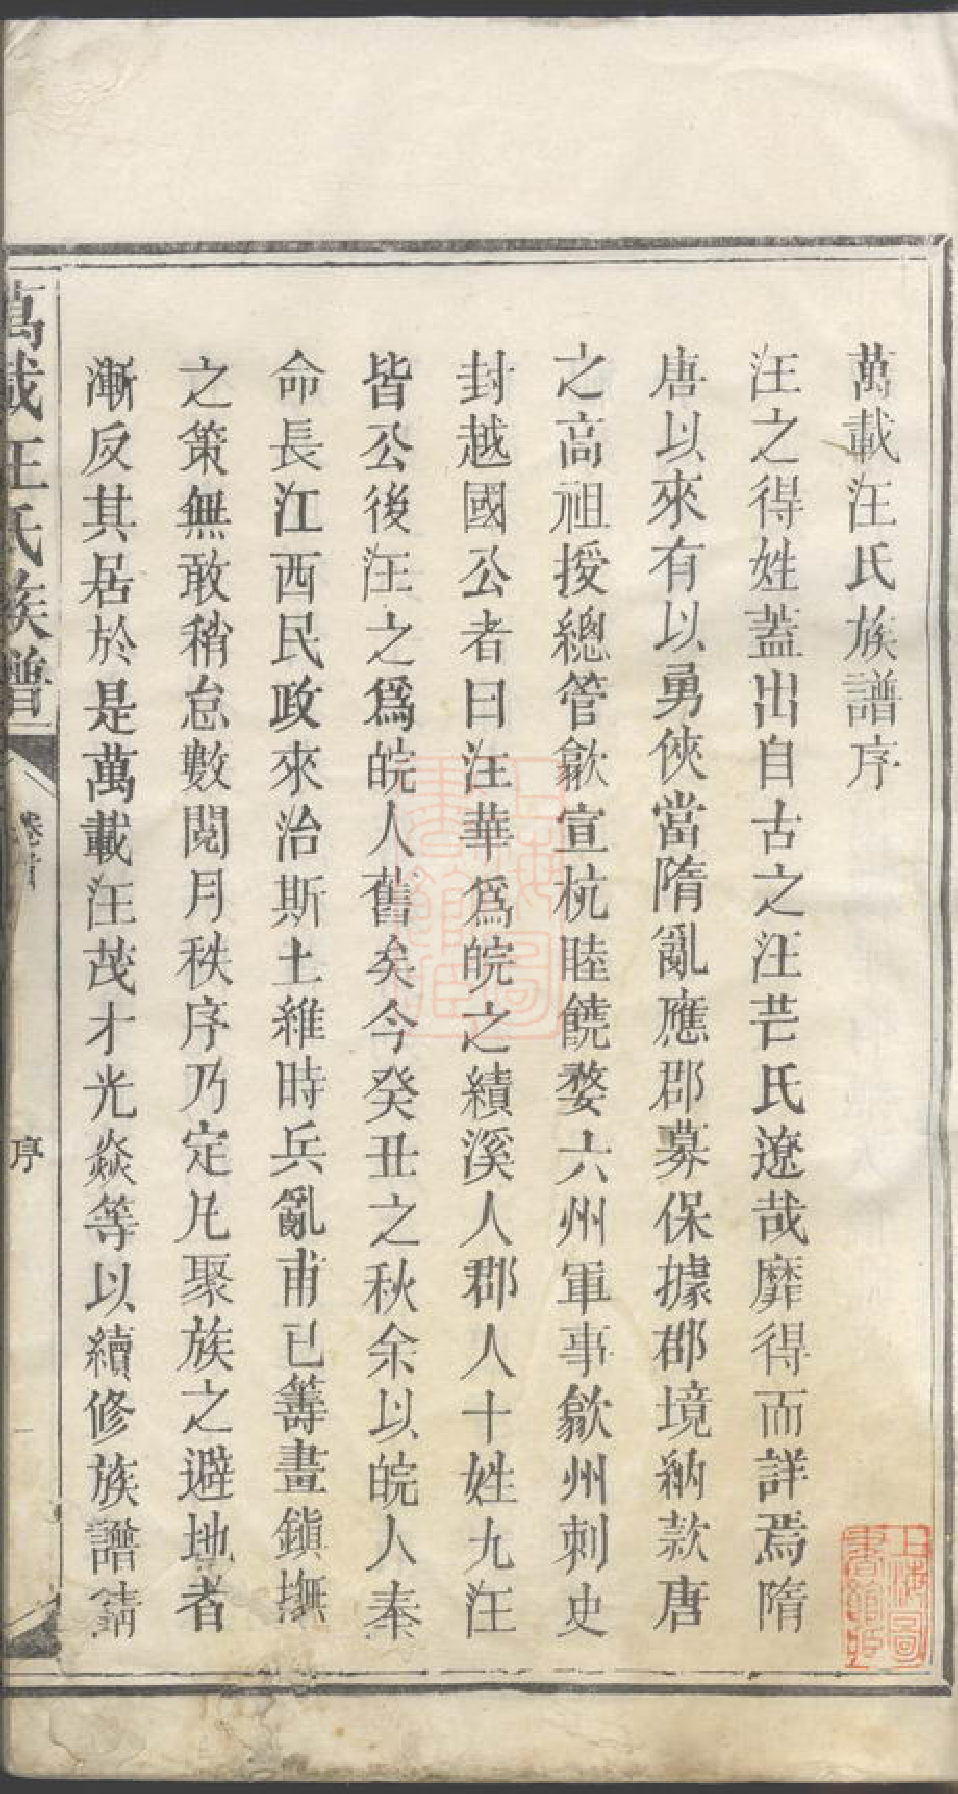 萬載汪氏族譜序
汪之得姓蓋出自古之汪芒氏遼哉靡得而詳焉隋
唐以來有以勇俠當隋亂應郡募保據郡境納款唐
之高祖授總管歙宣杭睦饒婺六州軍事歙州刺史
封越國公者曰汪華爲皖之績溪人郡人十姓九汪
皆公後汪之爲皖人舊矣今癸丑之秋余以皖人奉
命長江西民政來治斯土維時兵亂甫已籌畫鎮撫
之策無敢稍怠數閱月秩序乃定凡聚族之避地者
漸反其居於是萬載汪茂才光焱等以續修族譜請
萬載汪氏族譜
卷首
序
一
上海圖書館藏